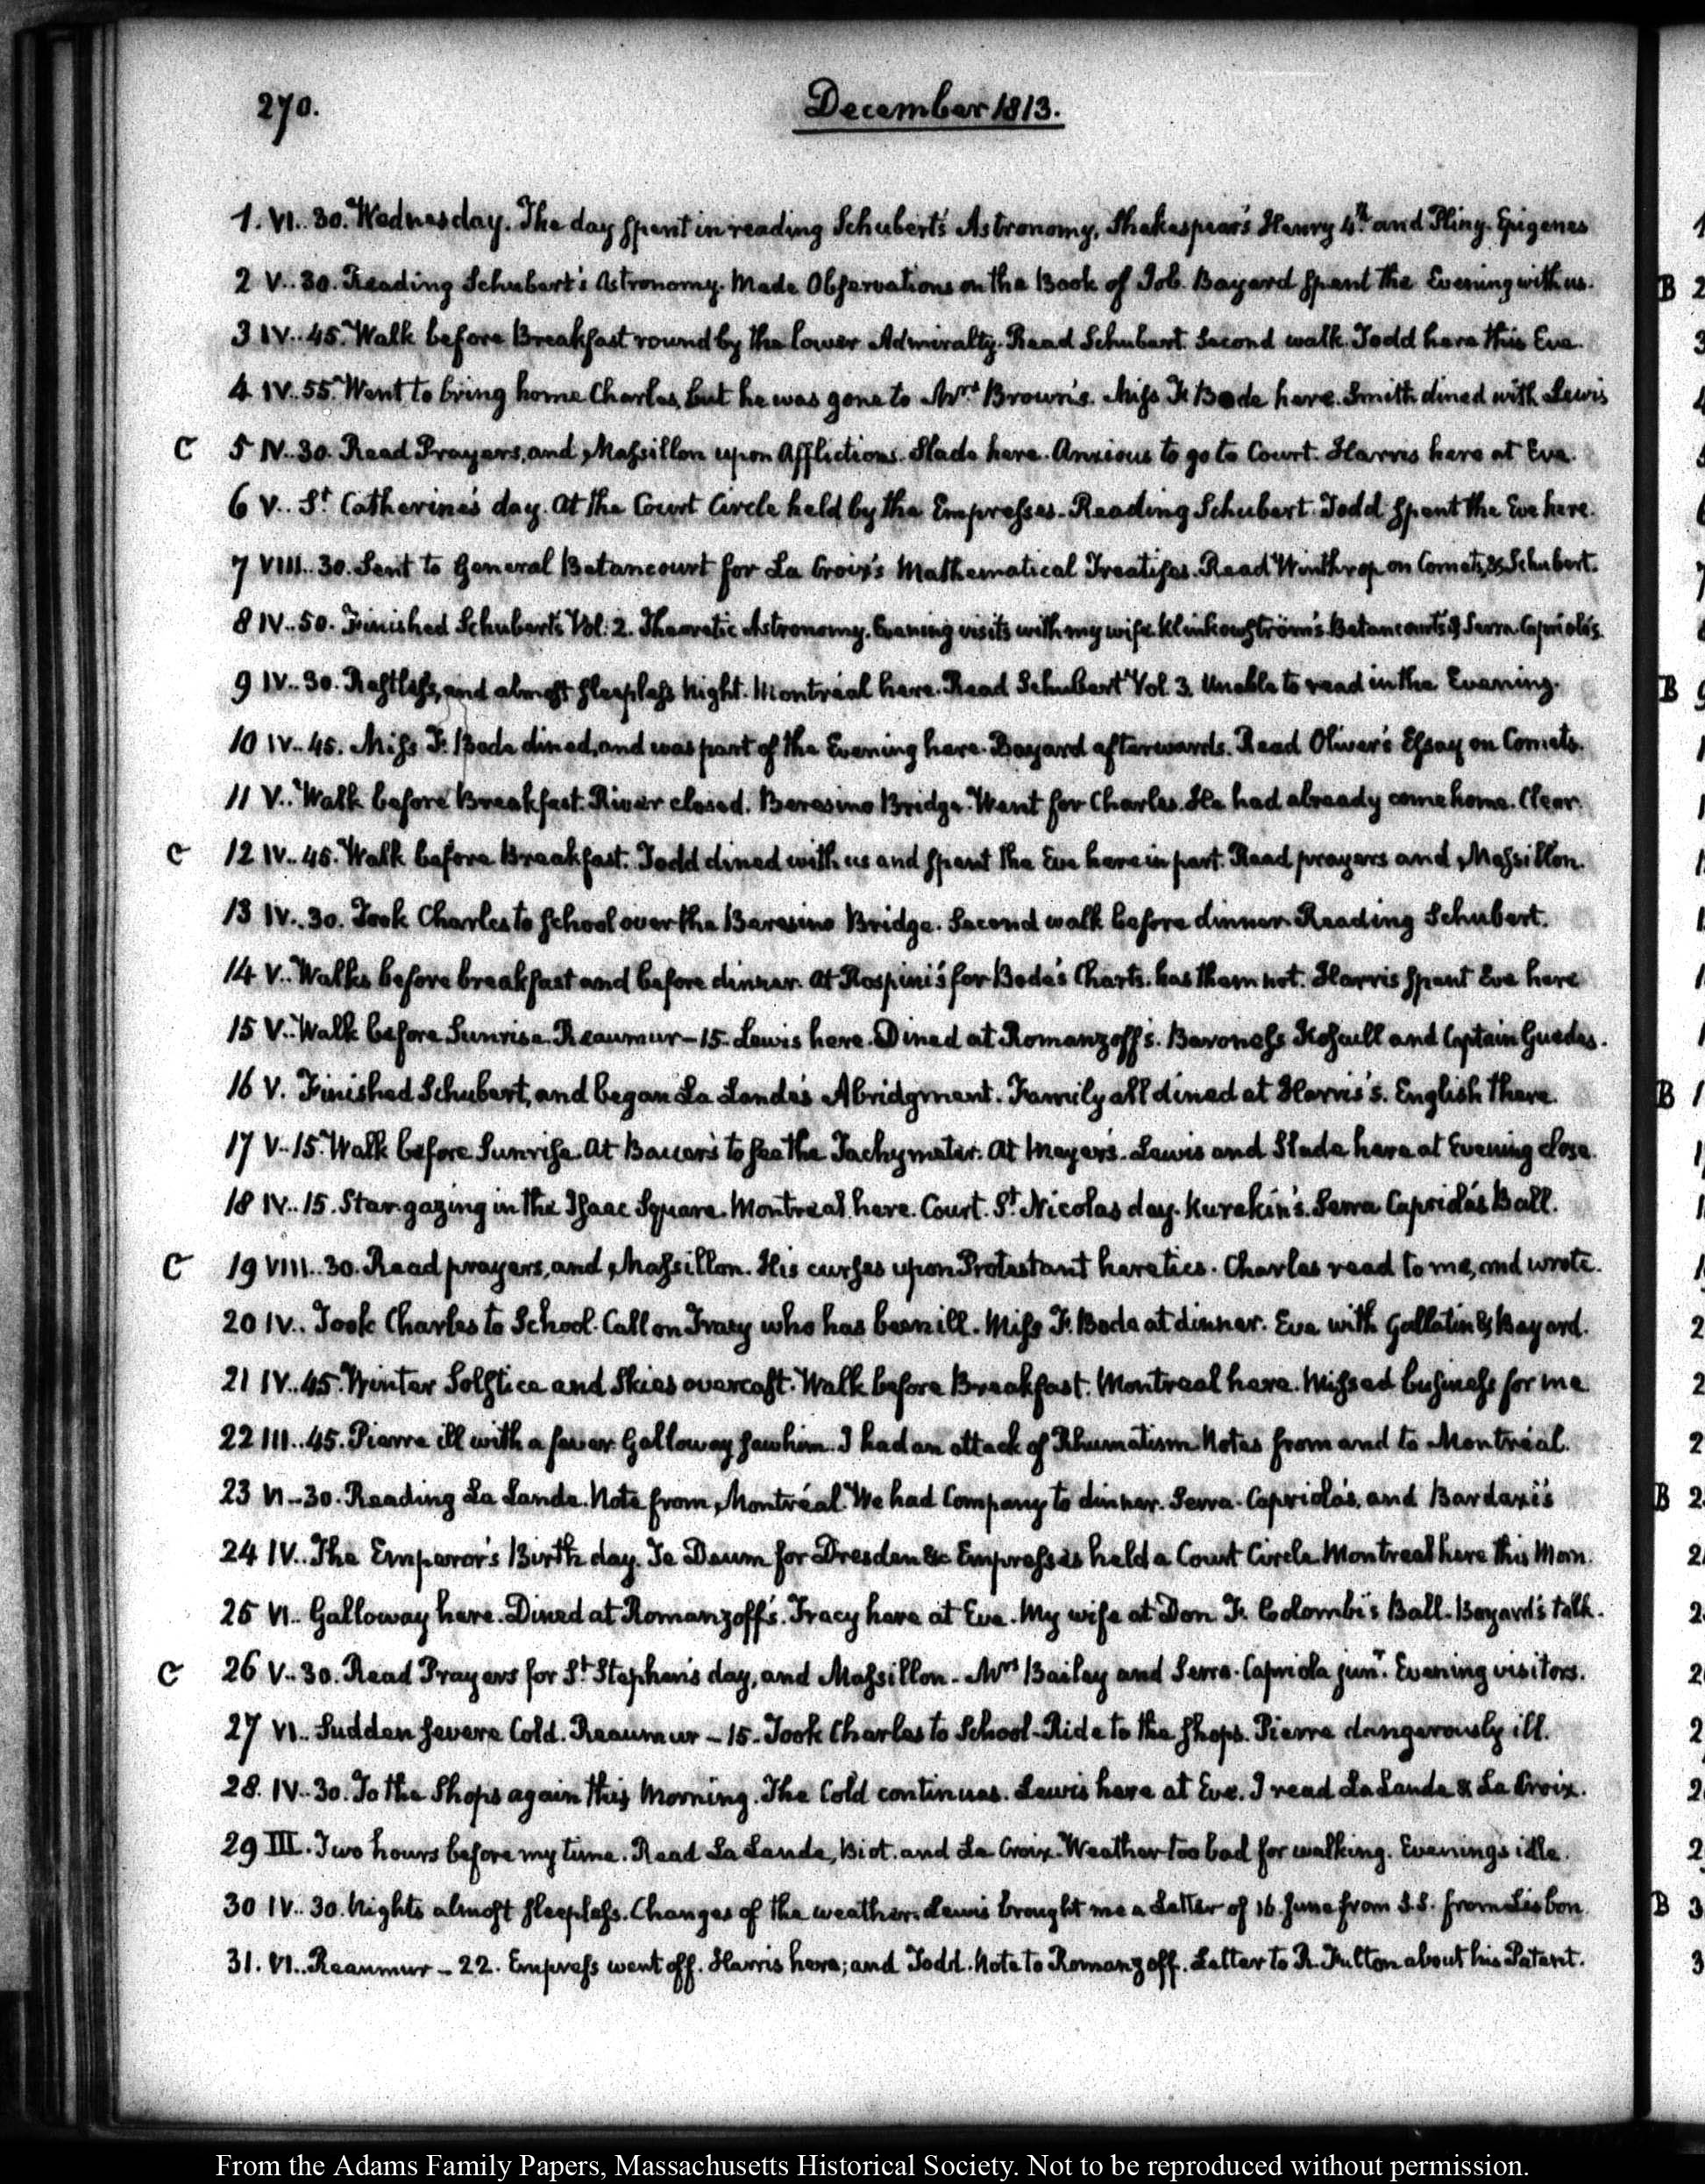 270. December 1813.
1. VI.. 30. Wednesday. The day spent in reading Schubert's Astronomy, Shakespear's Henry 4th and Pliny. Epigenes
2 V.. 30. Reading Schubert's Astronomy. Made Observations on the Book of Job. Bayard spent the Evening with us.
3 IV.. 45. Walk before Breakfast round by the lower Admiralty. Read Schubert. Second walk. Todd here this Eve.
4 IV.. 55. Went to bring home Charles, but he was gone to Mrs Brown's. Miss F. Bode here. Smith dined with Lewis
C 5 IV.. 30. Read Prayers, and Massillon upon Afflictions. Slade here. Anxious to go to Court. Harris here at Eve.
6 V.. St Catherine's day. At the Court Circle held by the Empresses. Reading Schubert. Todd spent the Eve here.
7 VIII.. 30. Sent to General Betancourt for La Croix's Mathematical Treatises. Read Winthrop on Comets, & Schubert.
8 IV.. 50. Finished Schubert's Vol: 2. Theoretic Astronomy. Evening visits with my wife. Klinkowström's Betancourt's & Serra Capriola's.
9 IV.. 30. Restless, and almost sleepless Night. Montréal here. Read Schubert Vol. 3. Unable to read in the Evening.
10 IV.. 45. Miss F. Bode dined, and was part of the Evening here. Bayard afterwards. Read Oliver's Essay on Comets.
11 V.. Walk before Breakfast. River closed. Beresino Bridge. Went for Charles. He had already come home. Clear.
C 12 IV.. 45. Walk before Breakfast. Todd dined with us and spent the Eve here in part. Read prayers and Massillon.
13 IV.. 30. Took Charles to School over the Beresino Bridge. Second walk before dinner. Reading Schubert.
14 V.. Walks before breakfast and before dinner. At Rospini's for Bode's Charts. has them not. Harris spent Eve here
15 V.. Walk before Sunrise. Reaumur - 15. Lewis here. Dined at Romanzoff's. Baroness and Captain Guedes.
16 V. Finished Schubert, and began La Lande's Abridgment. Family all dined at Harris's. English there.
17 V.. 15. Walk before Sunrise. At Bauer's to see the Tachymeter. At Meyer's. Lewis and Slade here at Evening close.
18 IV.. 15. Star-gazing in the Isaac Square. Montreal here. Court. St Nicolas day. Kurakin's. Serra Capriola's Ball.
C 19 VIII.. 30. Read prayers, and Massillon. His curses upon Protestant heretics. Charles read to me, and wrote.
20 IV.. Took Charles to School. Call on Tracy who has been ill. Miss F. Bode at dinner. Eve with Gallatin & Bayard.
21 IV.. 45. Winter Solstice and Skies overcast. Walk before Breakfast. Montreal here. Missed business for me
22 III.. 45. Pierre ill with a fever. Galloway saw him. I had an attack of Rhumatism. Notes from and to Montréal.
23 VI - 30. Reading La Lande. Note from Montréal. We had Company to dinner. Serra-Capriola's, and Bardaxi's
24 IV.. The Emperor's Birth day. Te Deum for Dresden &c. Empresses held a Court Circle. Montreal here this Morn.
25 VI.. Galloway here. Dined at Romanzoff's. Tracy here at Eve. My wife at Don F. Colombi's Ball. Bayard's talk.
C 26 V.. 30. Read Prayers for St Stephen's day, and Massillon. Mrs Bailey and Serra-Capriola junr. Evening visitors.
27 VI.. Sudden severe Cold. Reaumur - 15. Took Charles to School - Ride to the Shops. Pierre dangerously ill.
28. IV.. 30. To the Shops again this Morning. The Cold continues. Lewis here at Eve. I read La Lande & La Croix.
29 III. Two hours before my time. Read La Lande, Biot. and La Croix. Weather too bad for walking. Evenings idle.
30 IV.. 30. Nights almost sleepless. Changes of the weather. Lewis brought me a Letter of 16. June from S.S. from Lisbon
31. VI.. Reaumur - 22. Empress went off. Harris here; and Todd. Note to Romanzoff. Letter to R. Fulton about his Patent.
From the Adams Family Papers, Massachusetts Historical Society. Not to be reproduced without permission.